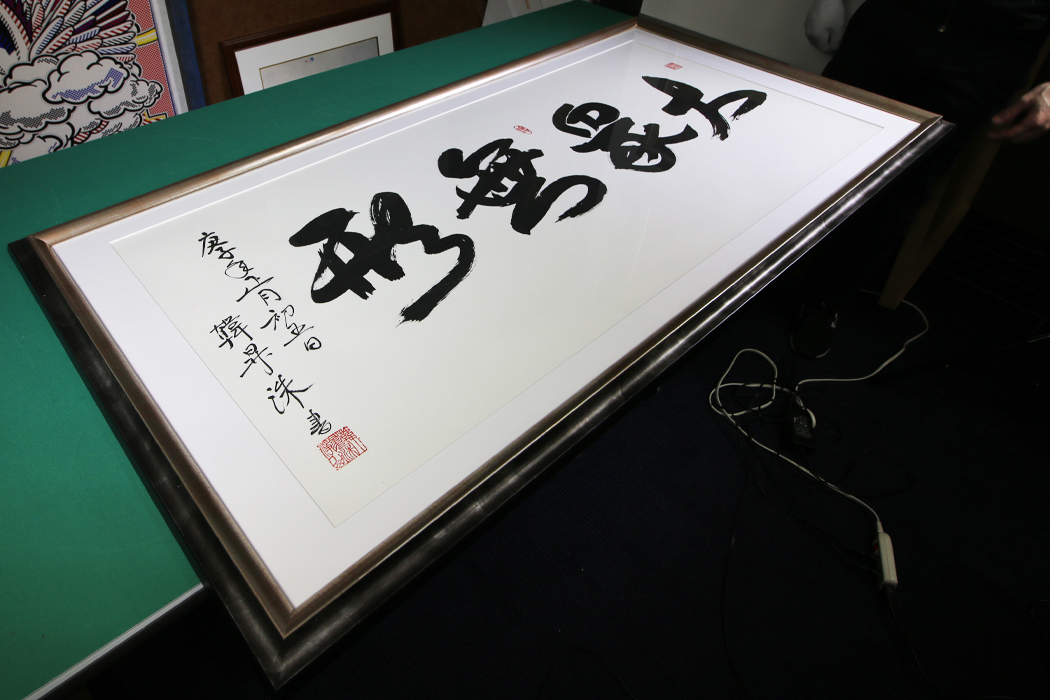 大象無形
庚子年六月初五日
韓昇洙書